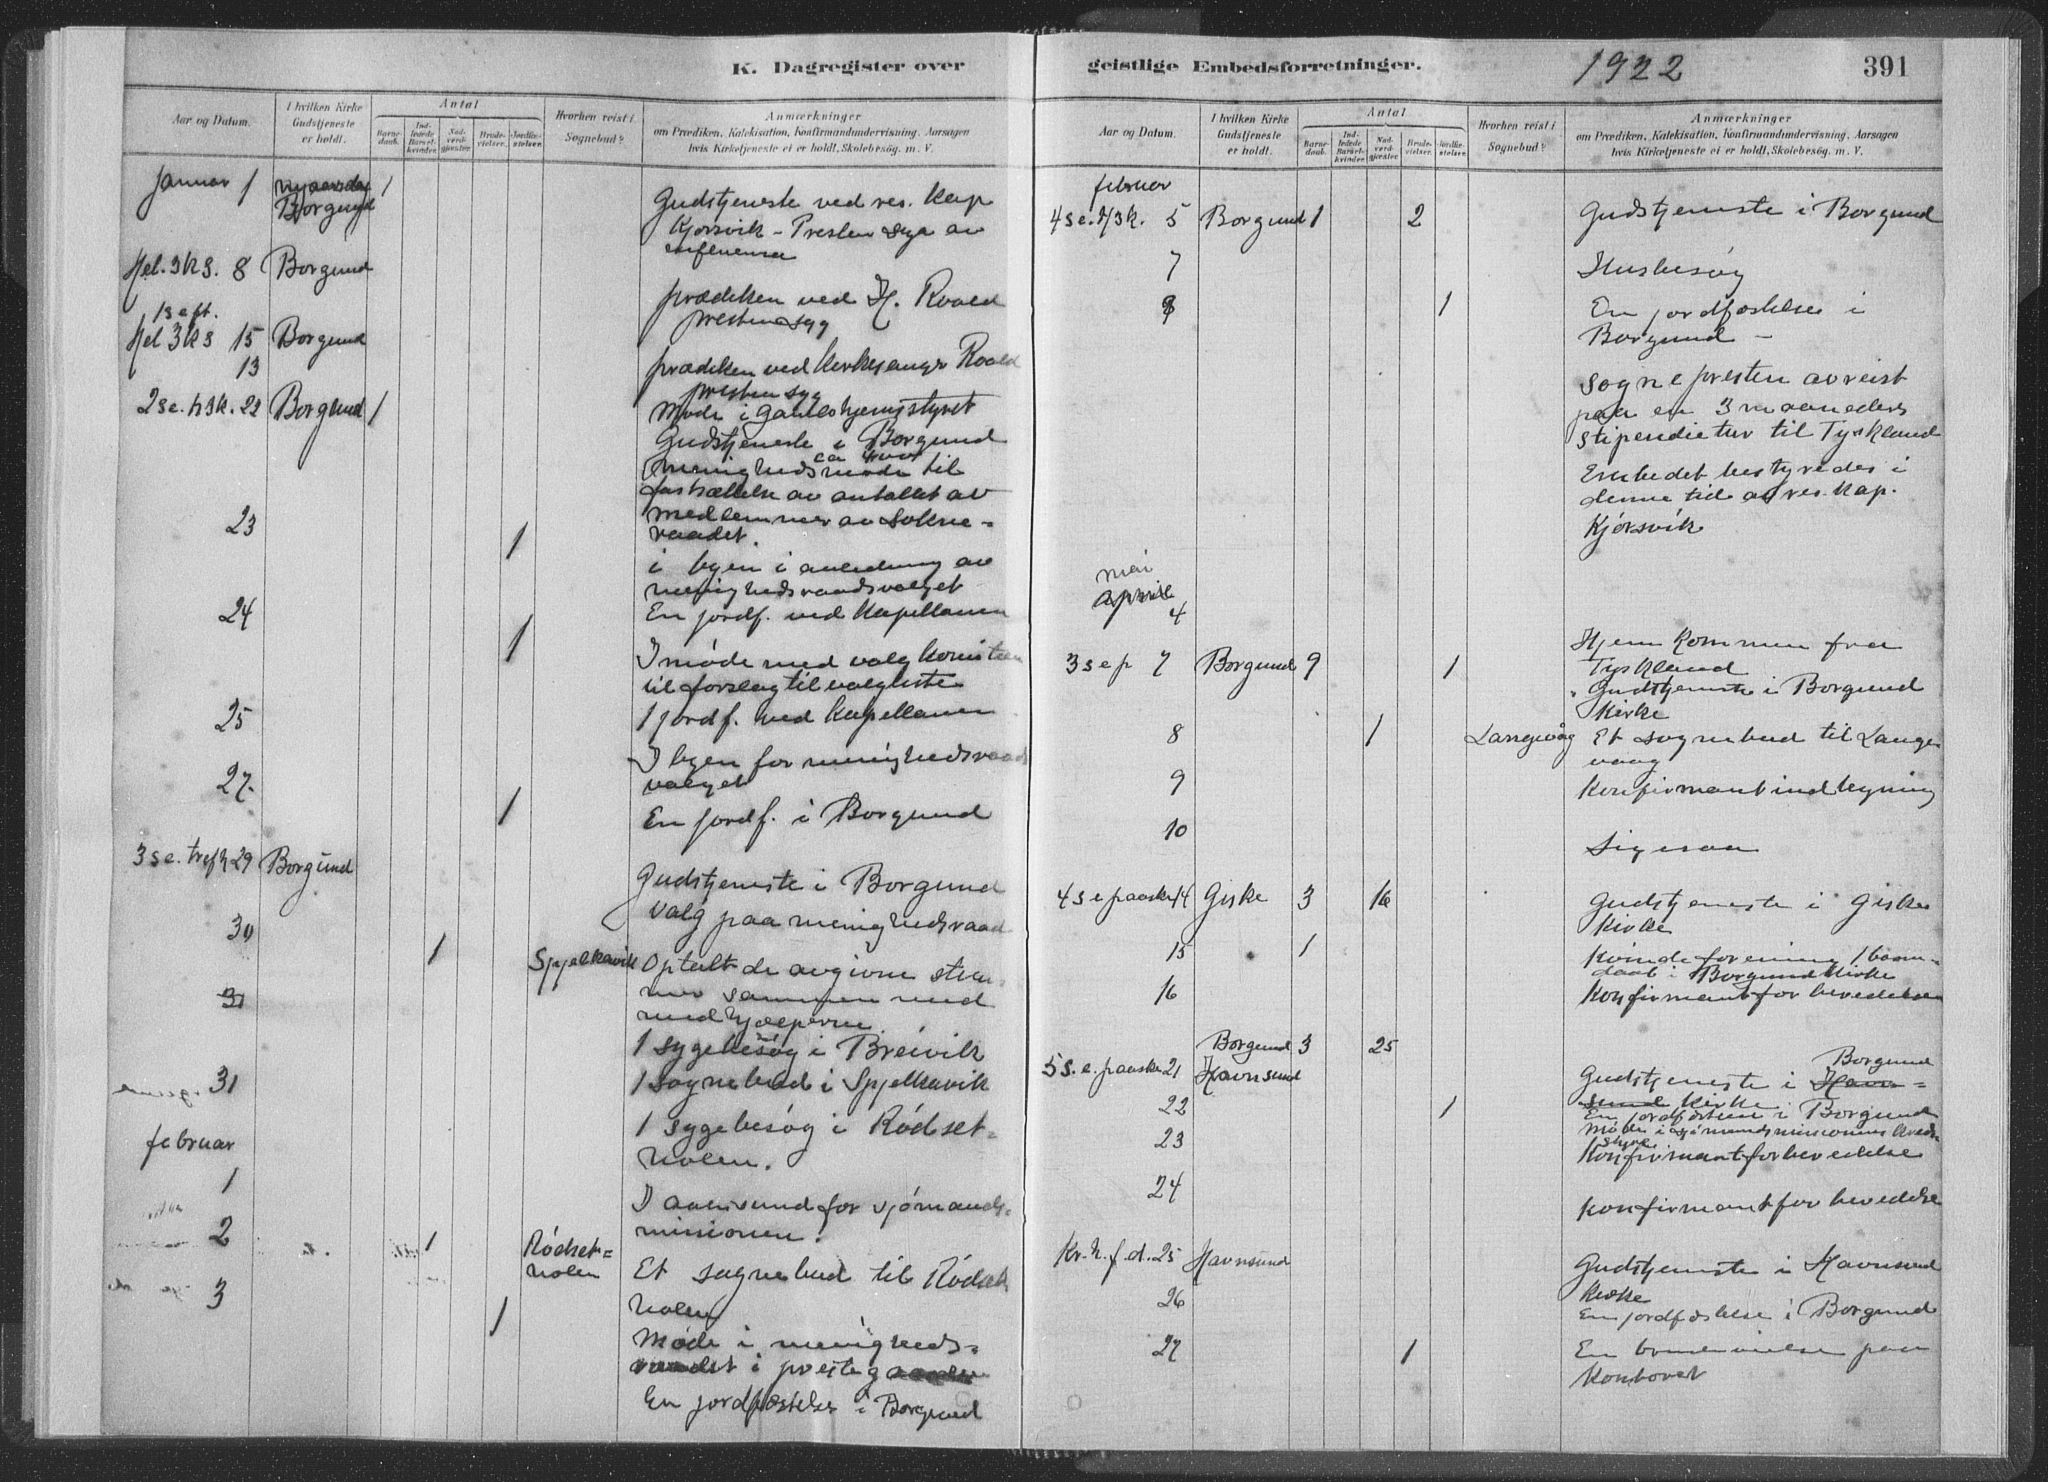 K. Dagregister over
Aar og Datum.
I hvilken Kirke Gudstjeneste er holdt.
Antal
Barnedaab.
Indledede Barselkvinder.
Nadverdgjester.
Brudevielser.
Jordfæstelser.
Hvorhen reist i Sognebud?
Anmærkninger
om Prædiken, Katekisation, Konfirmandundervisning, Aarsagen
hvis Kirketjeneste ei er holdt, Skolebesøg. m. V.
Januar 1 Nyaarsdag 1
Borgund
Gudstjeneste ved res. kap
Kjørsvik - Presten syg av
influensa
Hel. 3 k s. 8 Borgund
prædiken ved H. Roald
presten syg
1 s eft.
Hel 3 k s 15 Borgund
13
prædiken ved Kirkesanger Roald
presten syg
2 se. h 3 k. 22 Borgund 1
Møde i
Gudstjeneste i Borgund
menighedsmøde til
fastsættelse av antallet av
medlemmer av sokne-
raadet.
23 1
i byen i anledning av
menighedsraadsvalget
En jordf. ved Kapellanen
24 1
I møde med valgkomiteen
til forslag til valgliste
1 jordf. ved Kapellanen
25
I byen for menighedsraads
valget
27. 1
En jordf. i Borgund
3 se. 29 Borgund
Gudstjeneste i Borgund
Valg paa menighedsraad
30 1 Spjelkavik
Optalt de avgivne stem-
mer sammen med
medhjælperne
31
1 sygebesøg i Breivik
1 sognebud i Spjelkavik
31
1 sygebesøg i Rødset-
holen.
februar
1
I Aalesund for sjømands-
missionen.
2 1 Rødset-
holen
Et sognebud til Rødset
holen
3 1
Møde i menigheds-
raadet i
En jordfæstelse i Borgund
geistlige Embedsforretninger.
1922
391
Aar og Datum.
I hvilken Kirke Gudstjeneste er holdt.
Antal
Barnedaab.
Indledede Barselkvinder.
Nadverdgjester.
Brudevielser.
Jordfæstelser.
Hvorhen reist i Sognebud?
Anmærkninger
om Prædiken, Katekisation, Konfirmandundervisning, Aarsagen
hvis Kirketjeneste ei er holdt, Skolebesøg. m. V.
februar
4 s e. h 3 k. 5 Borgund 1 2
Gudstjeneste i Borgund
7
Husbesøg
1
En jordfæstelse i
Borgund -
Sognepresten avreist
paa en 3 maaneders
stipendietur til Tyskland
Embedet bestyredes i
denne tid av res. kap.
Kjørsvik
mai
april
4
Hjemkommen fra
Tyskland
3 s e p 7 Borgund 9 1
Gudstjeneste i Borgund
Kirke
8 1 Langevåg
Et sognebud til Lange
vaag
9
Konfirmantindtegning
10
4 s e paaske 14 Giske 3 16
Gudstjeneste i Giske
Kirke
15 1
Kvindeforening 1 barne-
daab i Borgund Kirke
16
Konfirmantforberedelse
Borgund 3 25
5 s. e. paaske 21 Havnsund
Borgund
Gudstjeneste i Havn-
sund Kirke
22 1
En jordfæstelse i Borgund
23
Møde i sjømandsmissionens kreds-
styre
Konfirmantforberedelse
24
Konfirmantforberedelse
Kr. h. f. d. 25 Havnsund
Gudstjeneste i Havnsund
Kirke
26
En jordfæstelse i Borgund
27 1
En brudevielse paa
Kontoret